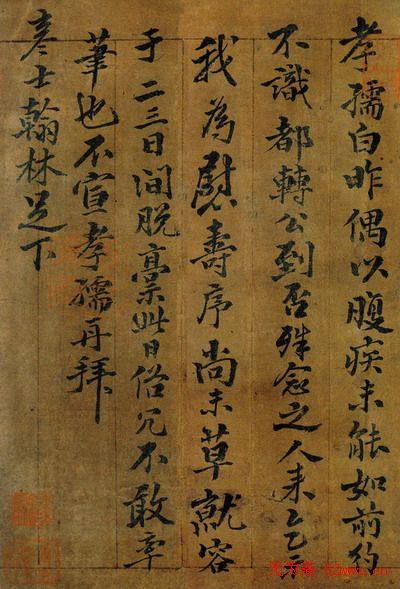 孝孺白昨偶以腹疾未能如前約
不識都轉公到否殊念之人来乞示
我為慰壽序尚未草就容
于二三日间脱藁此日俗冗不敢率
筆也不宣孝孺再拜
彦士翰林足下